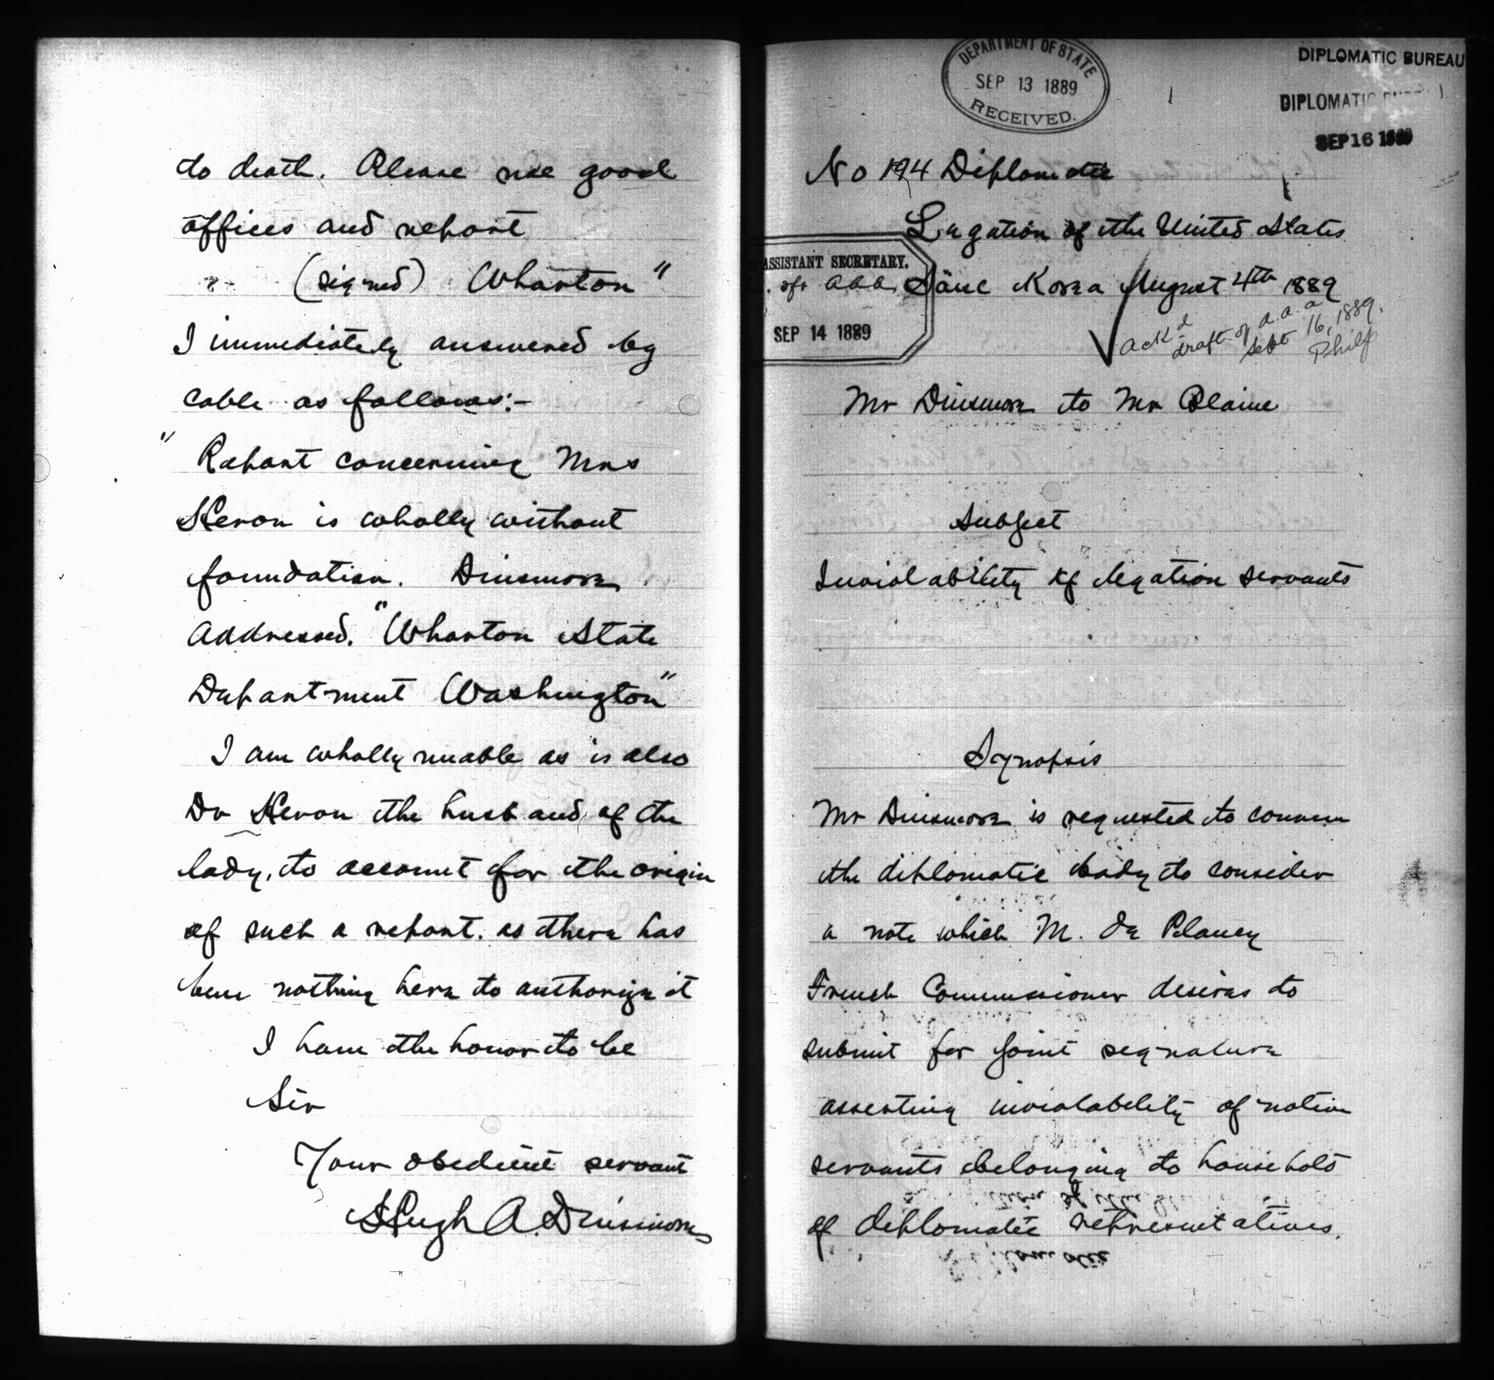 to death. Please use good
offices and report
(signed) Wharton"
I immediately answered by
cable as follows:-
" Report concerning Mrs
Heron is wholly without
foundation. Dinsmore
Addressed. "Wharton State
Department Washington"
I am wholly unable as is also
Dr Heron the husband of the
lady, to account for the origin
of such a report. as there has
been nothing here to authorize it
I have the honor to be
Sir
Your obedient servant
Hugh A. Dinsmore
DEPARTMENT OF STATE
SEP 13 1889
RECEIVED.
DIPLOMATIC BUREAU
DIPLOMATIC BUREAU
SEP 16 1889
No 194 Diplomatic
Legation of the United States
ASSISTANT SECRETARY.
SEP 14 1889
Söul Korea August 4th 1889
Ack'd
draft of a.a.a
Sept 16, 1889.
Mr Dinsmore to Mr Blaine
Subject
Inviolability of legation servants
Synopsis
Mr Dinsmore is requested to convene
the diplomatic body to consider
a note which M. de Plancy
French Commissioner desires to
submit for joint signature
asserting inviolability of native
servants belonging to household
of diplomatic representatives.